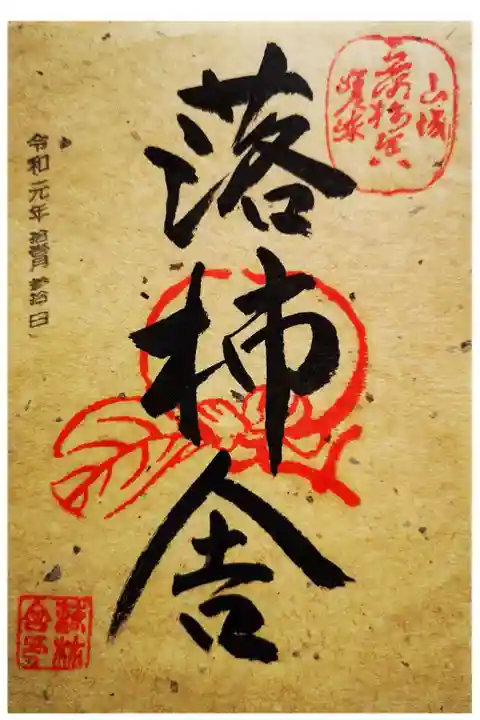 山城
落柿舎
嵯峨
落柿舎
令和元年拾壹月参拾日